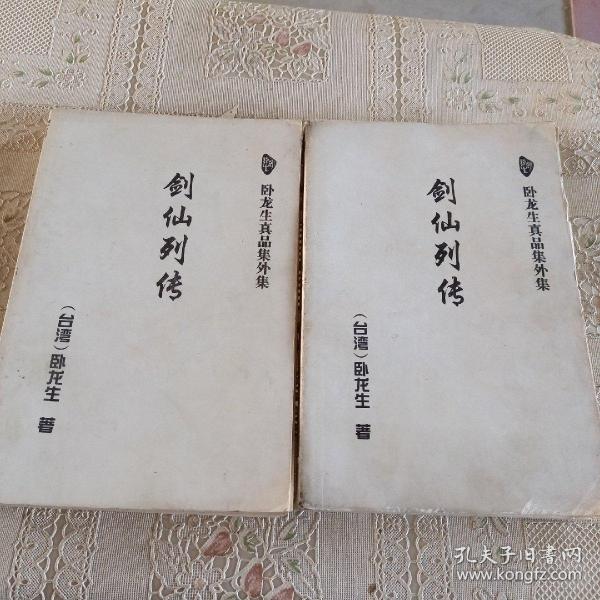 卧龙生真品集外集
剑仙列传
(台湾)卧龙生 著
卧龙生真品集外集
剑仙列传
(台湾)卧龙生 著
孔夫子旧书网
www.kongfz.com